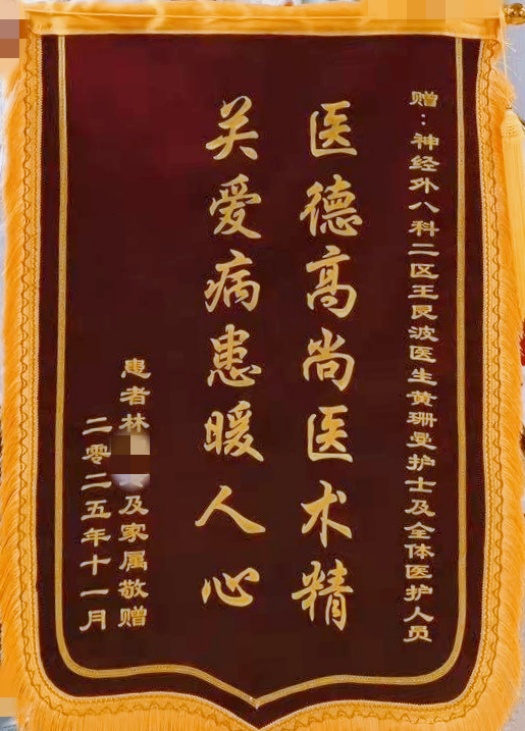 赠：神经外八科二区王良波医生黄珊曼护士及全体医护人员
医德高尚医术精
关爱病患暖人心
患者林 及家属敬赠
二零二五年十一月